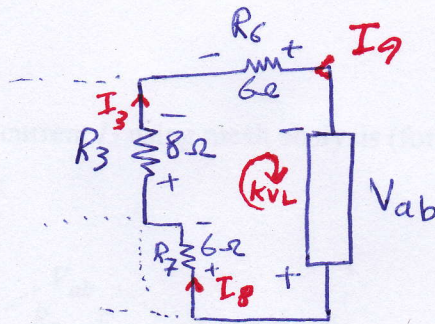 R6
- +
6Ω
I9
I3
-
R3
8Ω
+
-
KVL
Vab
-
R7
6Ω
+
+
I8